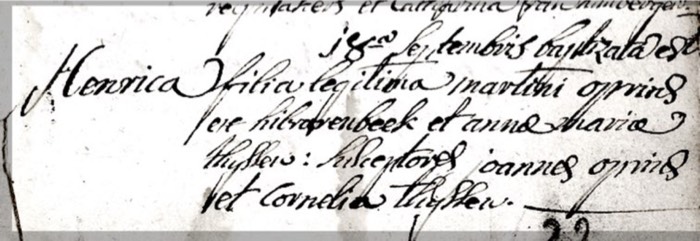 et Catharina
18a Septembris baptizata est
Henrica filia legitima martini oprins
ex hilvarenbeek et annæ mariæ
thyssen: susceptores joannes oprins
et Cornelia thyssen.
22